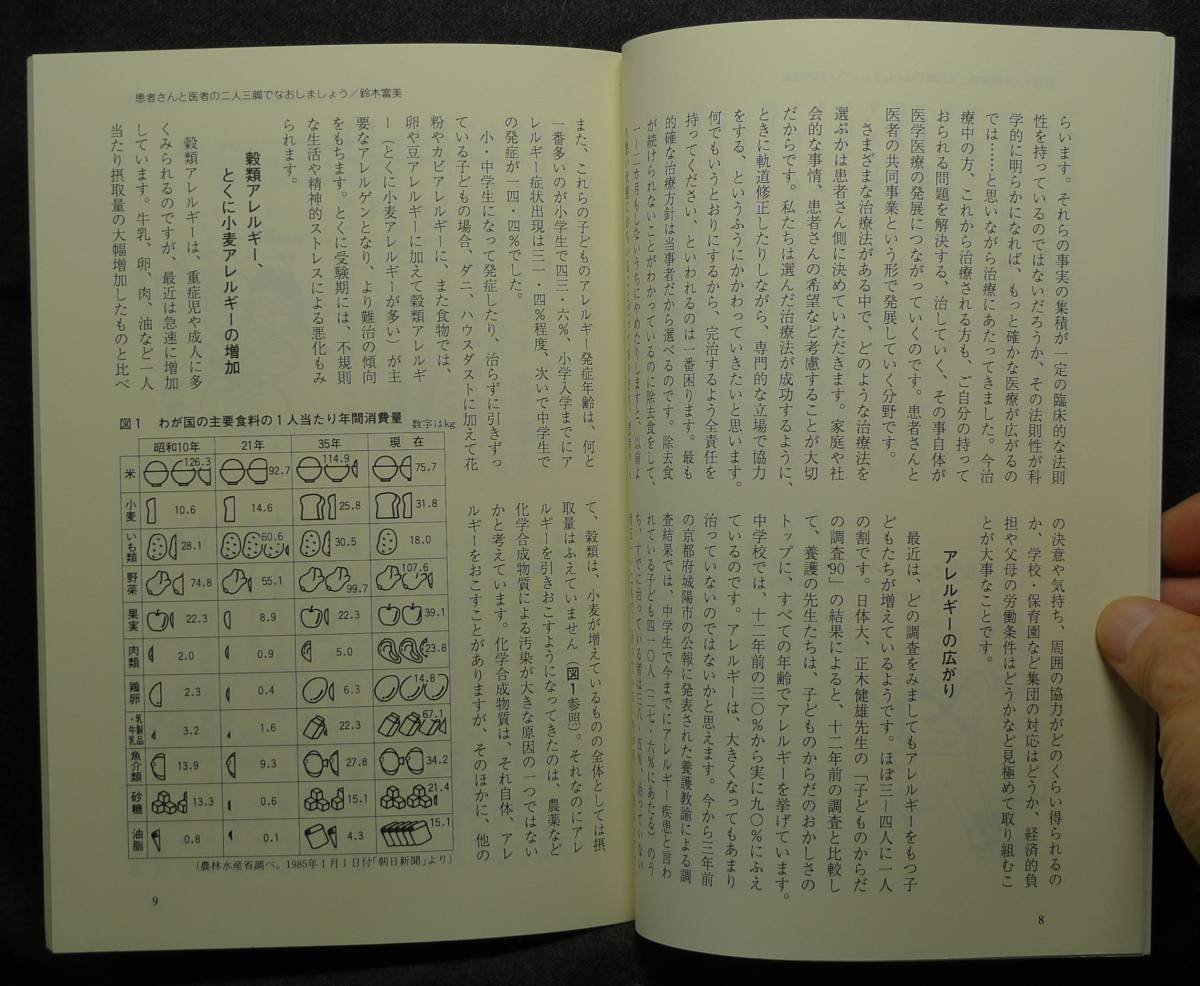 らいます。それらの事実の集積が一定の臨床的な法則
性を持っているのではないだろうか、その法則性が科
学的に明らかになれば、もっと確かな医療が広がるの
では……と思いながら治療にあたってきました。今治
療中の方、これから治療される方も、ご自分の持って
おられる問題を解決する、治していく、その事自体が
医学医療の発展につながっていくのです。患者さんと
医者の共同事業という形で発展していく分野です。
さまざまな治療法がある中で、どのような治療法を
選ぶかは患者さん側に決めていただきます。家庭や社
会的な事情、患者さんの希望など考慮することが大切
だからです。私たちは選んだ治療法が成功するように、
ときに軌道修正したりしながら、専門的な立場で協力
をする、というふうにかかわっていきたいと思います。
何でもいうとおりにするから、完治するよう全責任を
持ってください、といわれるのは一番困ります。最も
的確な治療方針は当事者だから選べるのです。除去食
が続けられないことがわかっているのに除去食をして、
一~二カ月もしないうちにやめたりしますと、以前よ
の決意や気持ち、周囲の協力がどのくらい得られるの
か、学校・保育園など集団の対応はどうか、経済的負
担や父母の労働条件はどうかなど見極めて取り組むこ
とが大事なことです。
アレルギーの広がり
最近は、どの調査をみましてもアレルギーをもつ子
どもたちが増えているようです。ほぼ三~四人に一人
の割です。日体大、正木健雄先生の「子どものからだ
の調査'90」の結果によると、十二年前の調査と比較し
て、養護の先生たちは、子どものからだのおかしさの
トップに、すべての年齢でアレルギーを挙げています。
中学校では、十二年前の三〇%から実に九〇%にふえ
ているのです。アレルギーは、大きくなってもあまり
治っていないのではないかと思えます。今から三年前
の京都府城陽市の公報に発表された養護教諭による調
査結果では、中学生で今までにアレルギー疾患と言わ
れている子ども四一〇人(二七・六%にあたる)のう
ち、すでに治っている者は三八・五%、治っていない
8
患者さんと医者の二人三脚でなおしましょう/鈴木富美
また、これらの子どものアレルギー発症年齢は、何と
一番多いのが小学生で四三・六%、小学入学までにア
レルギー症状出現は三一・四%程度、次いで中学生で
の発症が一四・四%でした。
小・中学生になって発症したり、治らずに引きずっ
ている子どもの場合、ダニ、ハウスダストに加えて花
粉やカビアレルギーに、また食物では、
卵や豆アレルギーに加えて穀類アレルギ
ー(とくに小麦アレルギーが多い)が主
要なアレルゲンとなり、より難治の傾向
をもちます。とくに受験期には、不規則
な生活や精神的ストレスによる悪化もみ
られます。
穀類アレルギー、
とくに小麦アレルギーの増加
穀類アレルギーは、重症児や成人に多
くみられるのですが、最近は急速に増加
しています。牛乳、卵、肉、油など一人
当たり摂取量の大幅増加したものと比べ
て、穀類は、小麦が増えているものの全体としては摂
取量はふえていません(図1参照)。それなのにアレ
ルギーを引きおこすようになってきたのは、農薬など
化学合成物質による汚染が大きな原因の一つではない
かと考えています。化学合成物質は、それ自体、アレ
ルギーをおこすことがありますが、そのほかに、他の
図1 わが国の主要食料の1人当たり年間消費量 数字はkg
昭和10年 21年 35年 現在
米 126.3 92.7 114.9 75.7
小麦 10.6 14.6 25.8 31.8
いも類 28.1 60.6 30.5 18.0
野菜 74.8 55.1 99.7 107.6
果実 22.3 8.9 22.3 39.1
肉類 2.0 0.9 5.0 23.8
鶏卵 2.3 0.4 6.3 14.8
牛乳・乳製品 3.2 1.6 22.3 67.1
魚介類 13.9 9.3 27.8 34.2
砂糖 13.3 0.6 15.1 21.4
油脂 0.8 0.1 4.3 15.1
(農林水産省調べ。1985年1月1日付「朝日新聞」より)
9